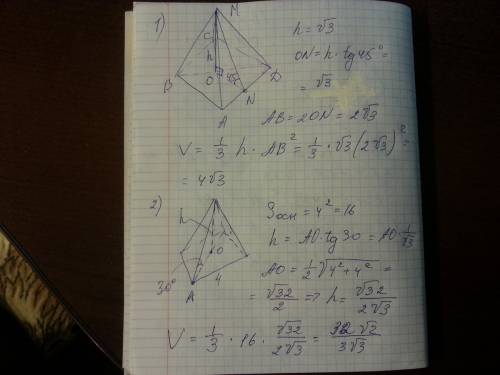 1)
M
C
h
O
45°
B
D
N
A
h = √3
ON = h · tg 45° =
= √3
AB = 2ON = 2√3
V = 1/3 h · AB² = 1/3 · √3 (2√3)² =
= 4√3
2)
h
O
30°
A
4
Sосн = 4² = 16
h = AO · tg 30 = AO · 1/√3
AO = 1/2 √4² + 4² =
= √32/2 => h = √32/2√3
V = 1/3 · 16 · √32/2√3 = 32√2/3√3